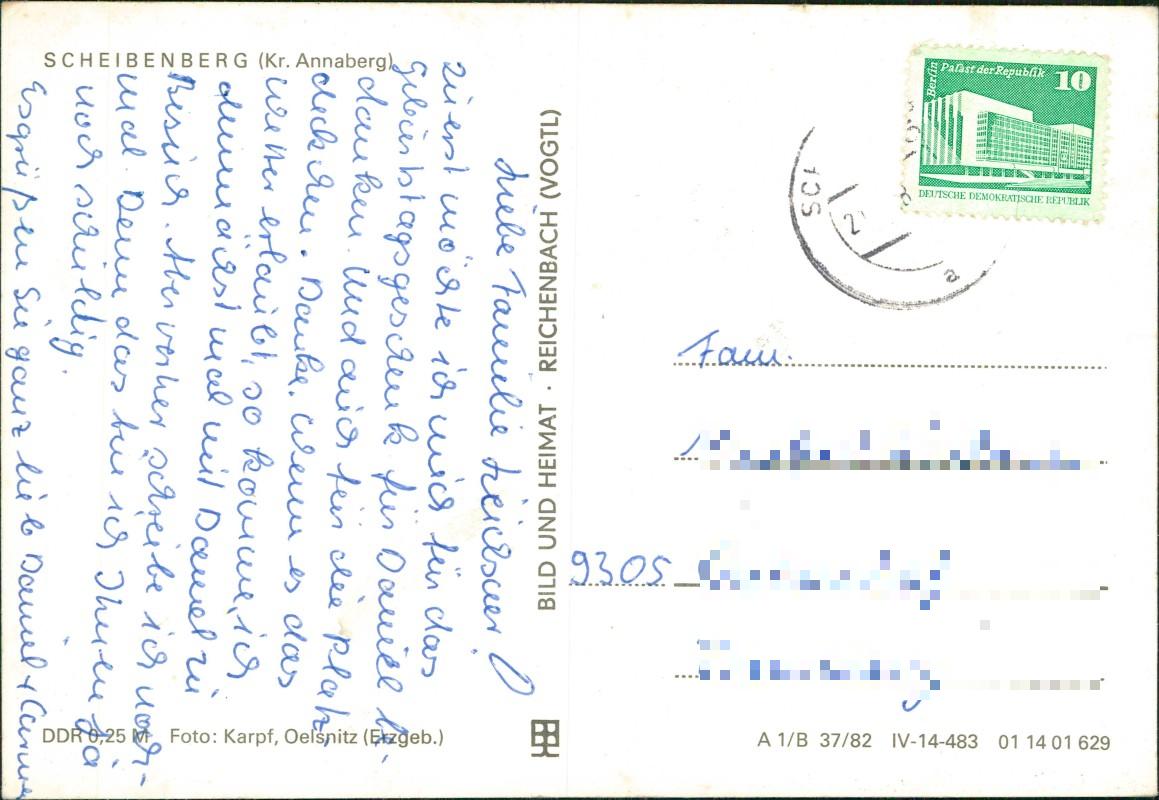 SCHEIBENBERG (Kr. Annaberg)
Liebe Familie
zuerst möchte ich mich für das
Geburtstagsgeschenk für Daniel be-
danken. Und auch für die Platz-
deckchen. Danke. Wenn es das
Wetter erlaubt, so komme ich
demnächst mal mit Daniel zu
Besuch. Aber vorher schreibe ich noch-
mal. Denn das bin ich Ihnen ja
noch schuldig.
Es grüßen Sie ganz lieb Daniel +
BILD UND HEIMAT · REICHENBACH (VOGTL)
Berlin Palast der Republik 10
DEUTSCHE DEMOKRATISCHE REPUBLIK
a
Fam.
9305
DDR 0,25 M Foto: Karpf, Oelsnitz (Erzgeb.)
A 1/B 37/82 IV-14-483 01 14 01 629